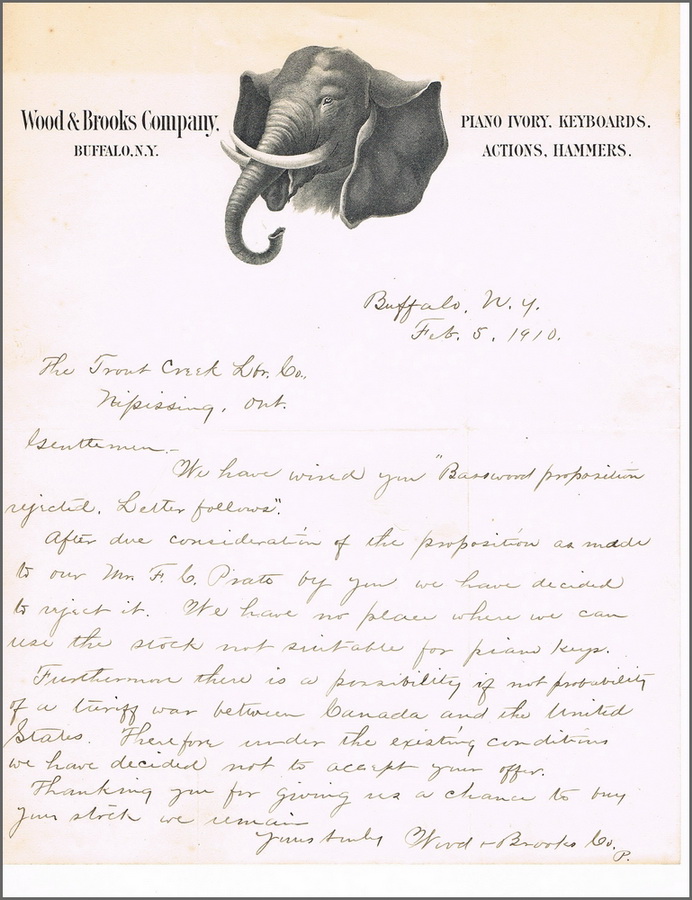 Wood & Brooks Company.
BUFFALO, N.Y.
PIANO IVORY. KEYBOARDS.
ACTIONS, HAMMERS.
Buffalo, N. Y.
Feb. 5, 1910.
The Trout Creek Lbr. Co.,
Nipissing, Ont.
Gentlemen:-
We have wired you "Basswood proposition
rejected. Letter follows".
After due consideration of the proposition as made
to our Mr. F. C. by you we have decided
to reject it. We have no place where we can
use the stock not suitable for piano keys.
Furthermore there is a possibility if not probability
of a tariff war between Canada and the United
States. Therefore under the existing conditions
we have decided not to accept your offer.
Thanking you for giving us a chance to buy
your stock we remain
Yours truly Wood & Brooks Co.
P.